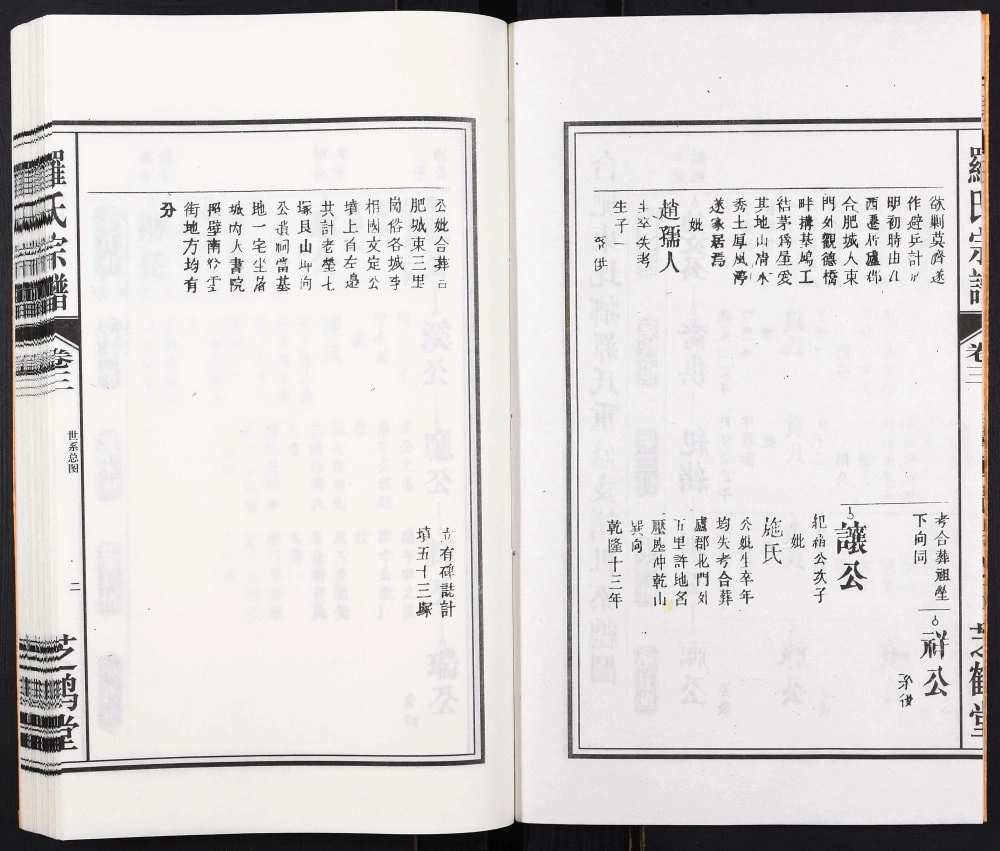 羅氏宗譜
卷三
芝鶴堂
欲剿莫濟遂
作避兵計
明初時由江
西遷於廬郡
合肥城大東
門外觀德橋
畔搆基鳩工
結茅爲屋愛
其地山清水
秀土厚風淳
遂家居焉
妣
趙孺人
生卒失考
生子一
齊供
考合葬祖塋
下向同
祥公
系後
讓公
紀緒公次子
妣
施氏
公妣生卒年
均失考合葬
廬郡北門外
五里許地名
壓塱冲乾山
巽向
乾隆十三年
公妣合葬合
肥城東三里
岡俗名城李
相國文定公
墳上首左邊
共計老塋七
塚艮山坤向
公遺祠當基
地一宅坐落
城内人書院
照壁南份雲
街地方均有
分
立有碑誌計
墳五十三塚
羅氏宗譜
卷三
世系总图
二
芝鹤堂